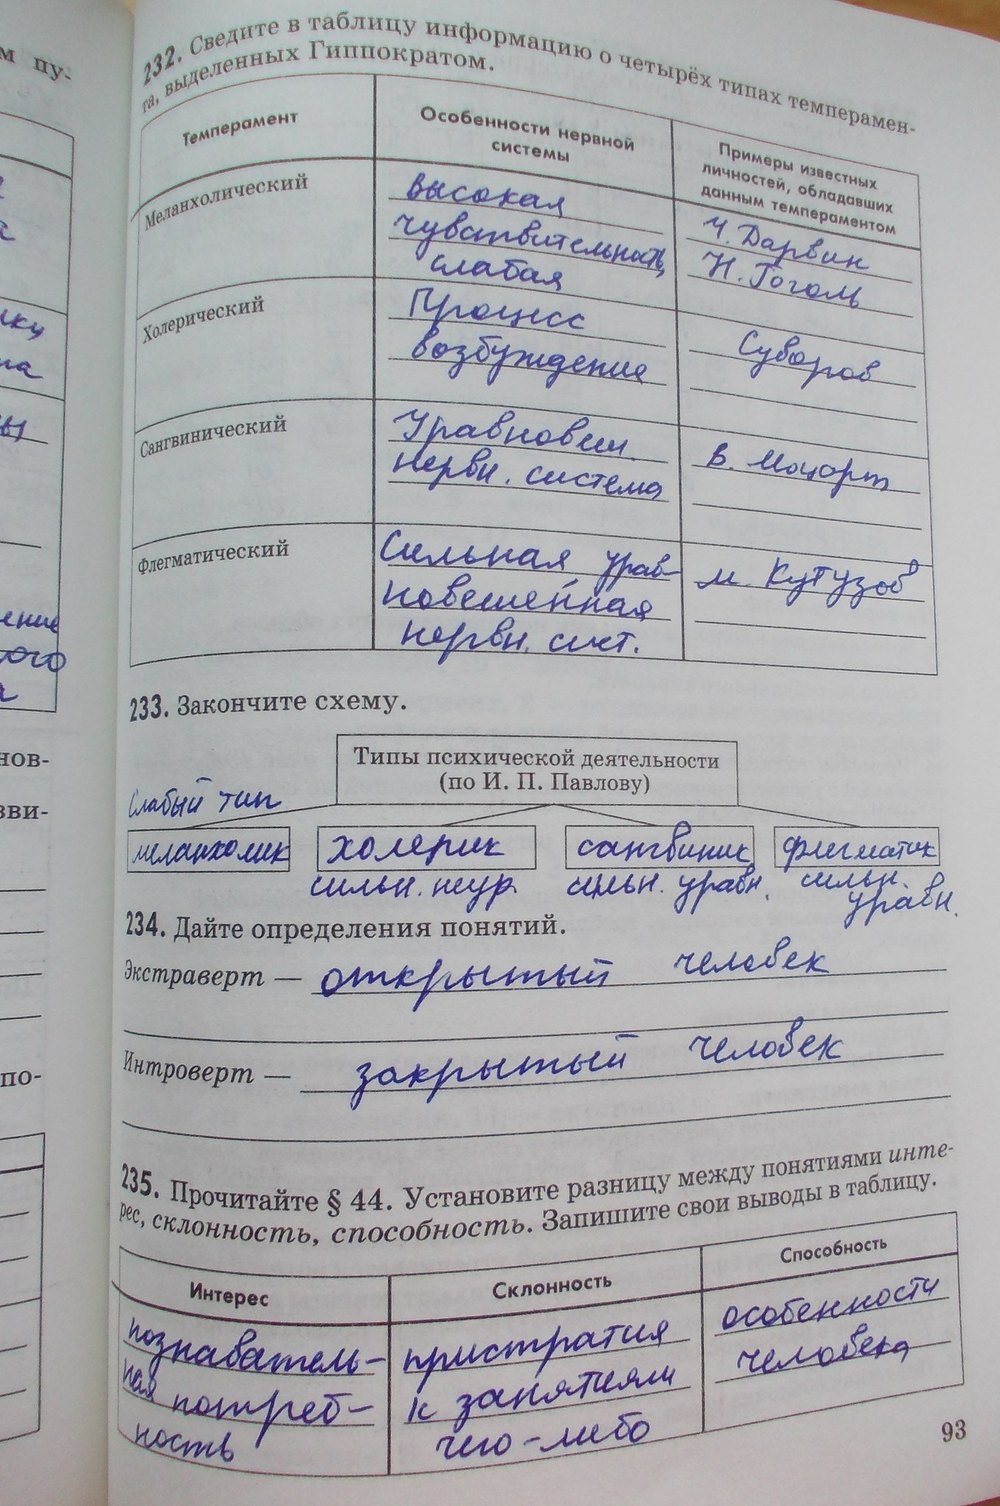 м пу-
232. Сведите в таблицу информацию о четырёх типах темперамен-
та, выделенных Гиппократом.
Темперамент
Особенности нервной
системы
Примеры известных
личностей, обладавших
данным темпераментом
Меланхолический
высокая
чувствительность,
слабая
Ч. Дарвин
Н. Гоголь
Холерический
Процесс
возбуждение
Суворов
Сангвинический
Уравновеш.
нервн. система
В. Моцарт
Флегматический
Сильная урав-
новешенная
нервн. сист.
М. Кутузов
233. Закончите схему.
Типы психической деятельности
(по И. П. Павлову)
Слабый тип
меланхолик
холерик
сангвиник
флегматик
сильн. неур.
сильн. уравн.
сильн.
уравн.
234. Дайте определения понятий.
Экстраверт — открытый человек
Интроверт — закрытый человек
235. Прочитайте § 44. Установите разницу между понятиями инте-
рес, склонность, способность. Запишите свои выводы в таблицу.
Интерес
Склонность
Способность
познаватель-
ная потреб-
ность
пристратия
к занятиям
чего-либо
особенности
человека
93
нов-
зви-
по-